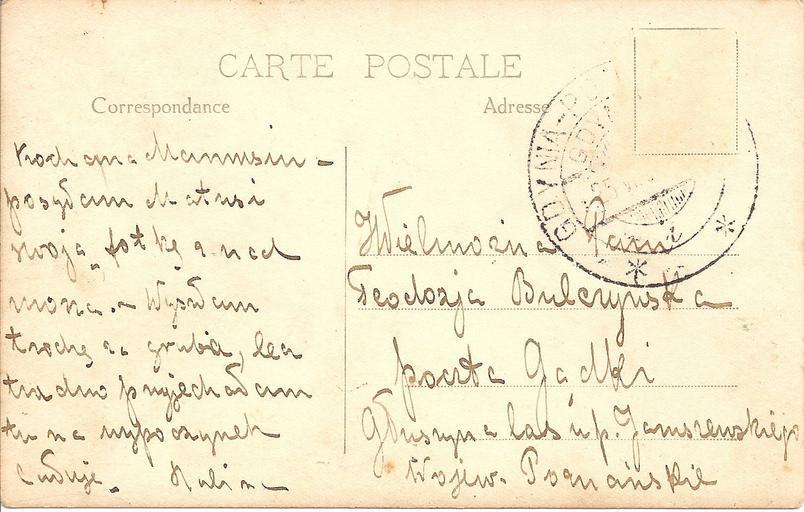 CARTE POSTALE
Correspondance
Adresse
GDYNIA
Kochana Mamusiu -
posyłam Matusi
swoją „fotkę" nad
morza. - Wyszłam
trochę za gruba, lecz
trudno przyjechałam
tu na wypoczynek
Całuję. Halina
Wielmożna Pani
Teodozja Bulczyńska
poczta Gądki
Głuszyna las u p. Januszewskiego
Wojew. Poznańskie